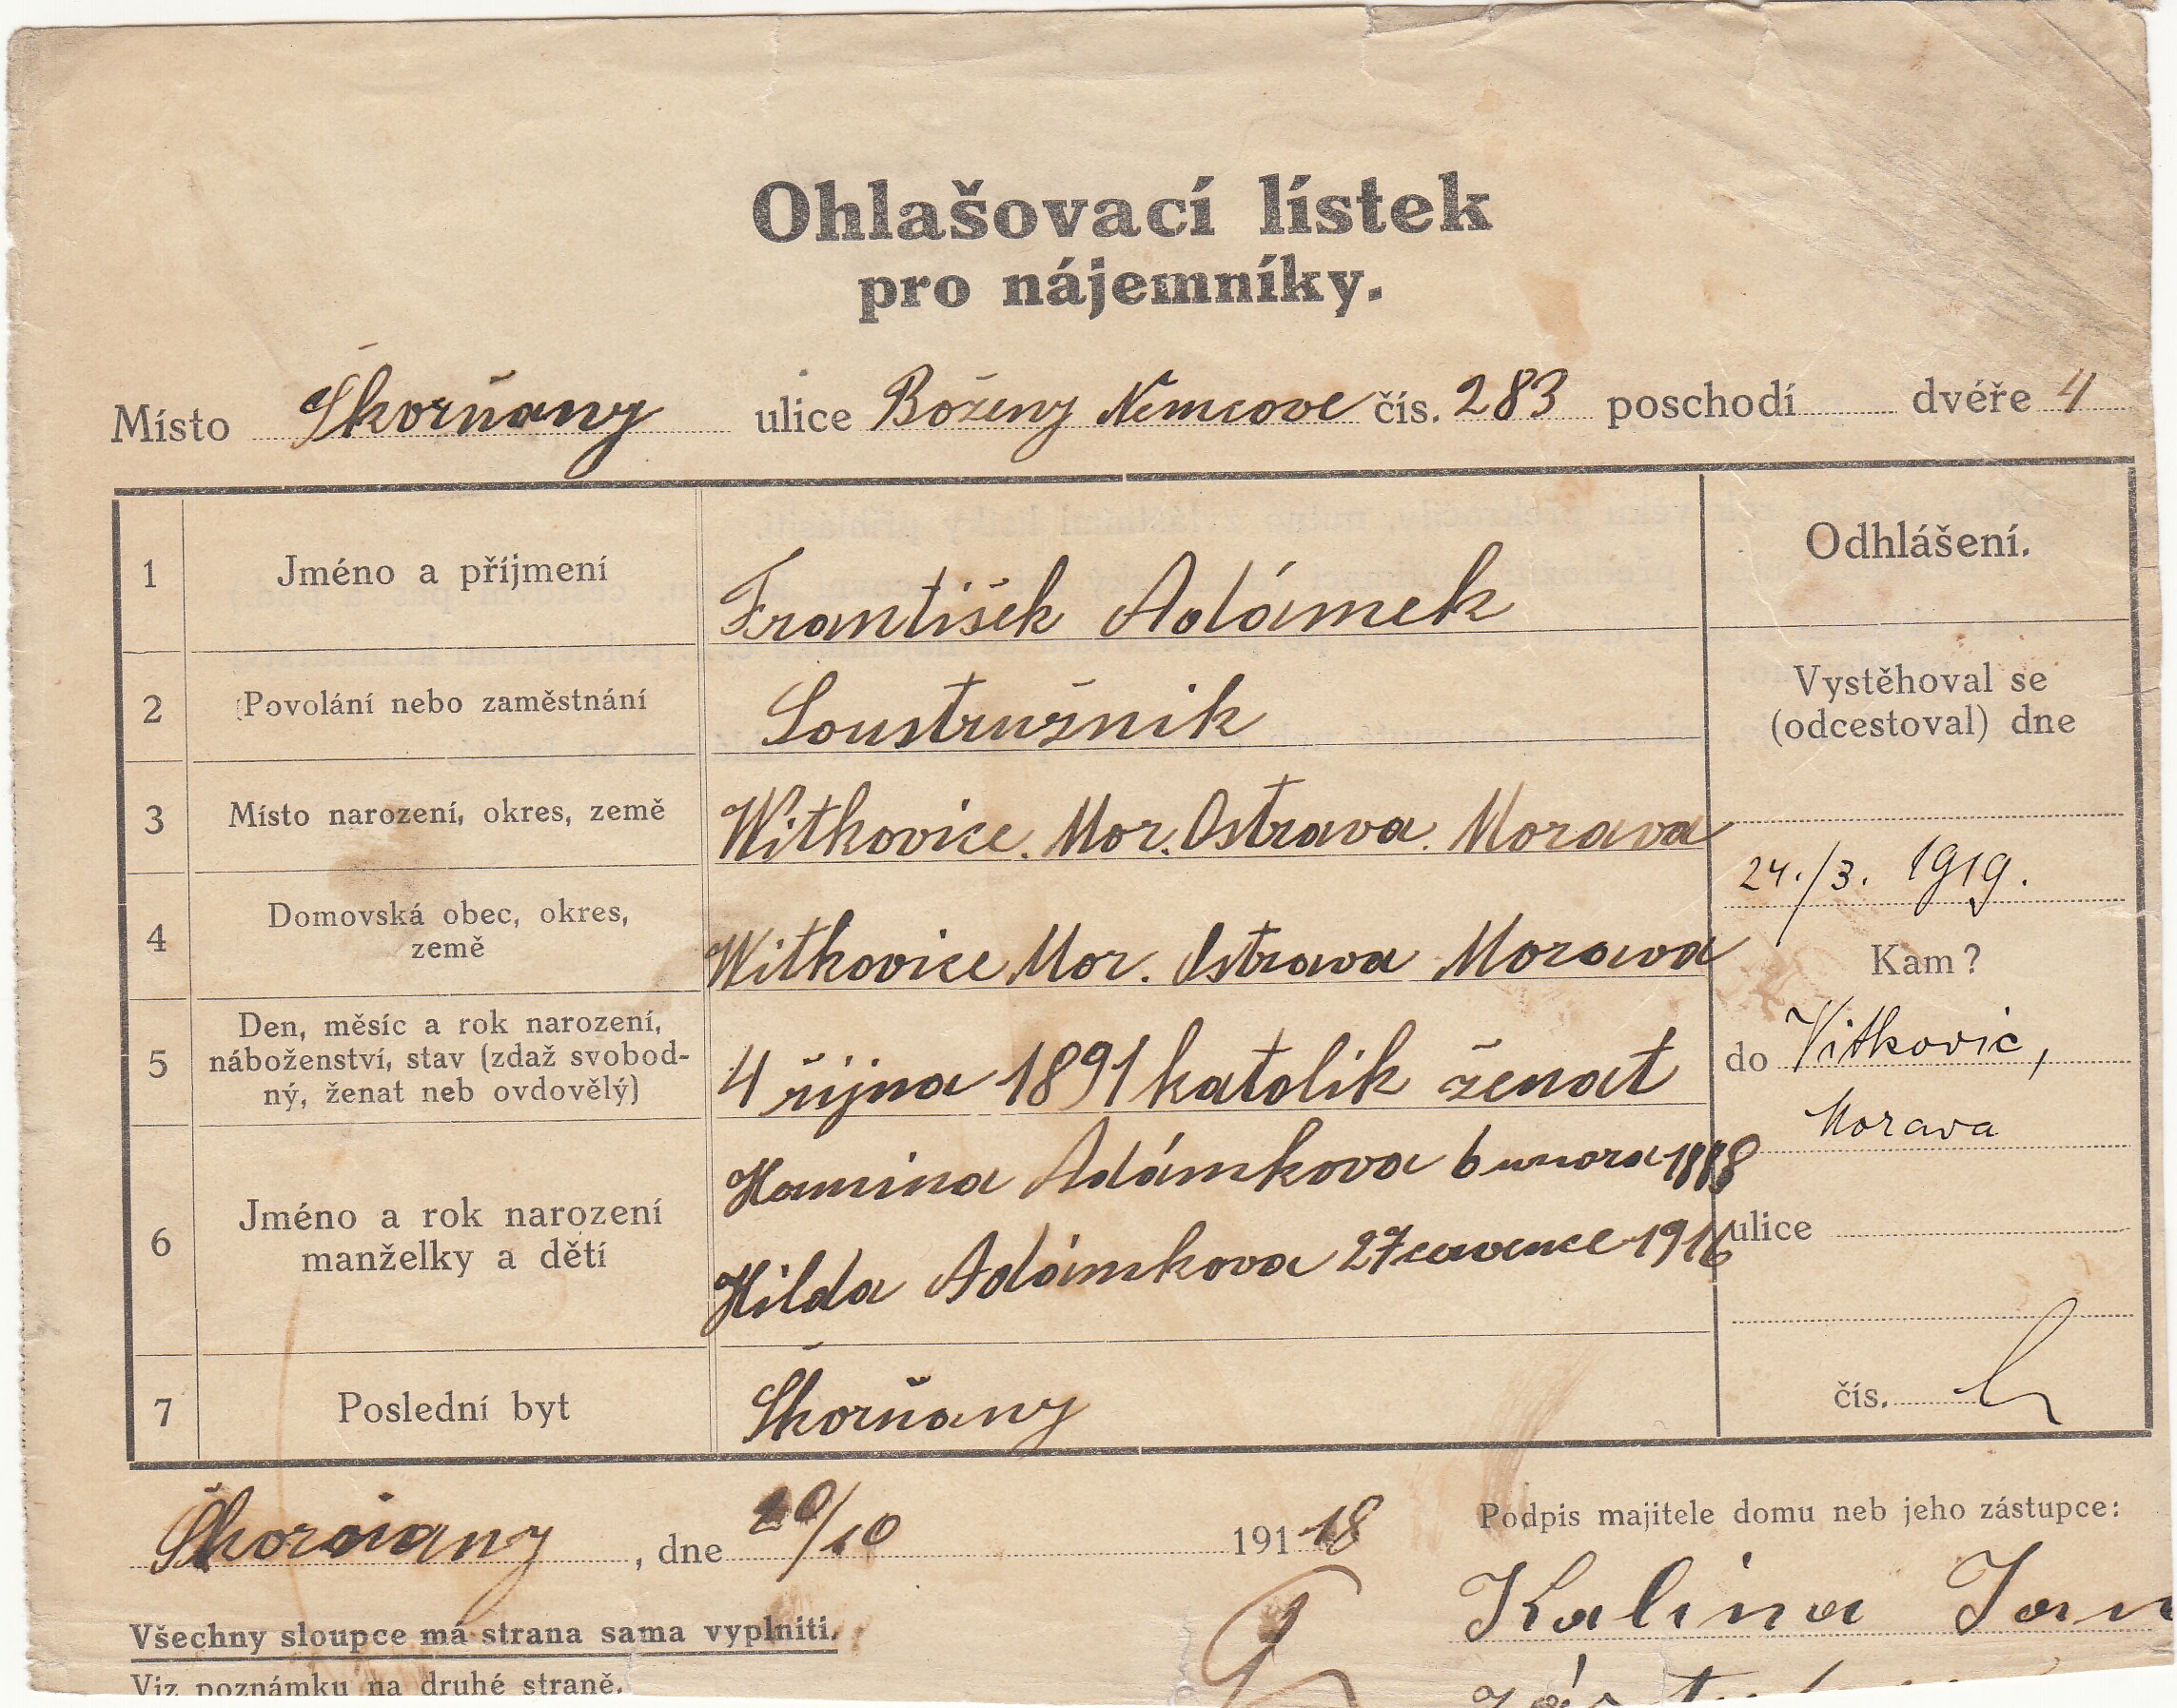 Ohlašovací lístek
pro nájemníky.
Místo Škorňany ulice Boženy Nemcove čís. 283 poschodí dvéře 4
1 Jméno a příjmení František Adámek
2 Povolání nebo zaměstnání Soustružnik
3 Místo narození, okres, země Witkovice. Mor. Ostrava. Morava
4 Domovská obec, okres,
země Witkovice Mor. Ostrava Morava
5 Den, měsíc a rok narození,
náboženství, stav (zdaž svobod-
ný, ženat neb ovdovělý) 4 října 1891 katolik ženat
6 Jméno a rok narození
manželky a dětí
Hamina Adámkova 6 unora 1888
Hilda Adámkova 27 cervence 1916
7 Poslední byt Škorňany
Odhlášení.
Vystěhoval se
(odcestoval) dne
24./3. 1919.
Kam?
do Vitkovic,
Morava
ulice
čís.
, dne 20/10 191 18
Podpis majitele domu neb jeho zástupce:
Kalina Jan
Všechny sloupce má strana sama vyplniti.
Viz poznámku na druhé straně.